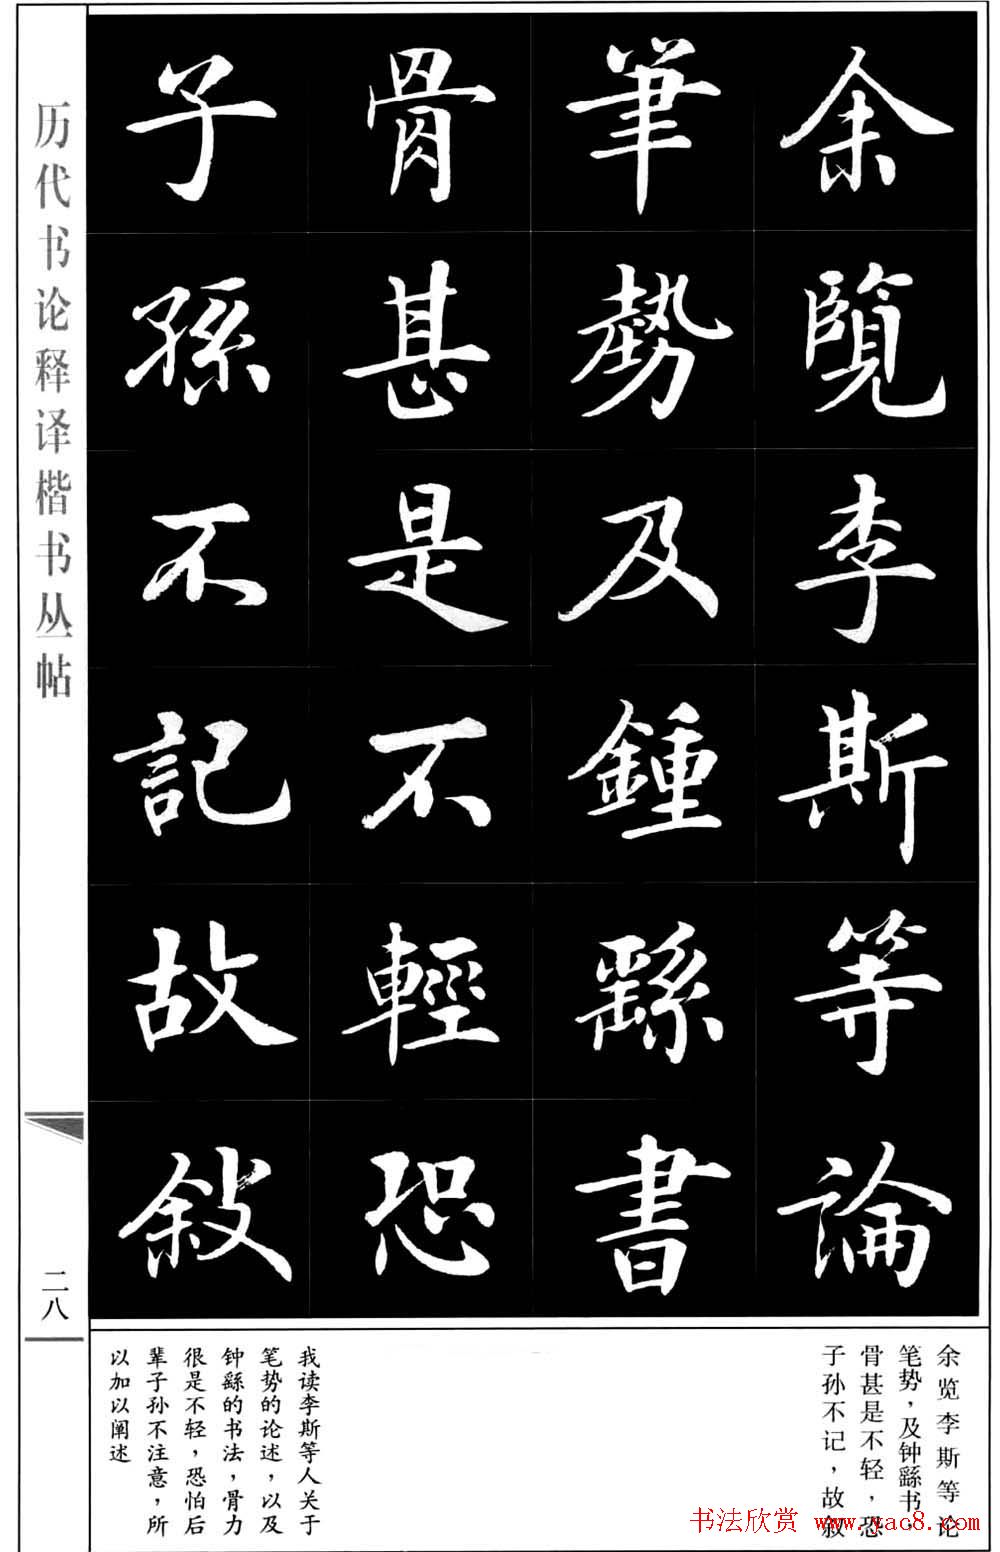 余覽李斯等論
筆勢及鍾繇書
骨甚是不輕恐
子孫不記故敘
历代书论释译楷书丛帖
二八
余览李斯等论
笔势，及钟繇书，
骨甚是不轻，恐
子孙不记，故叙
我读李斯等人关于
笔势的论述，以及
钟繇的书法，骨力
很是不轻，恐怕后
辈子孙不注意，所
以加以阐述
书法欣赏 www.yac8.com